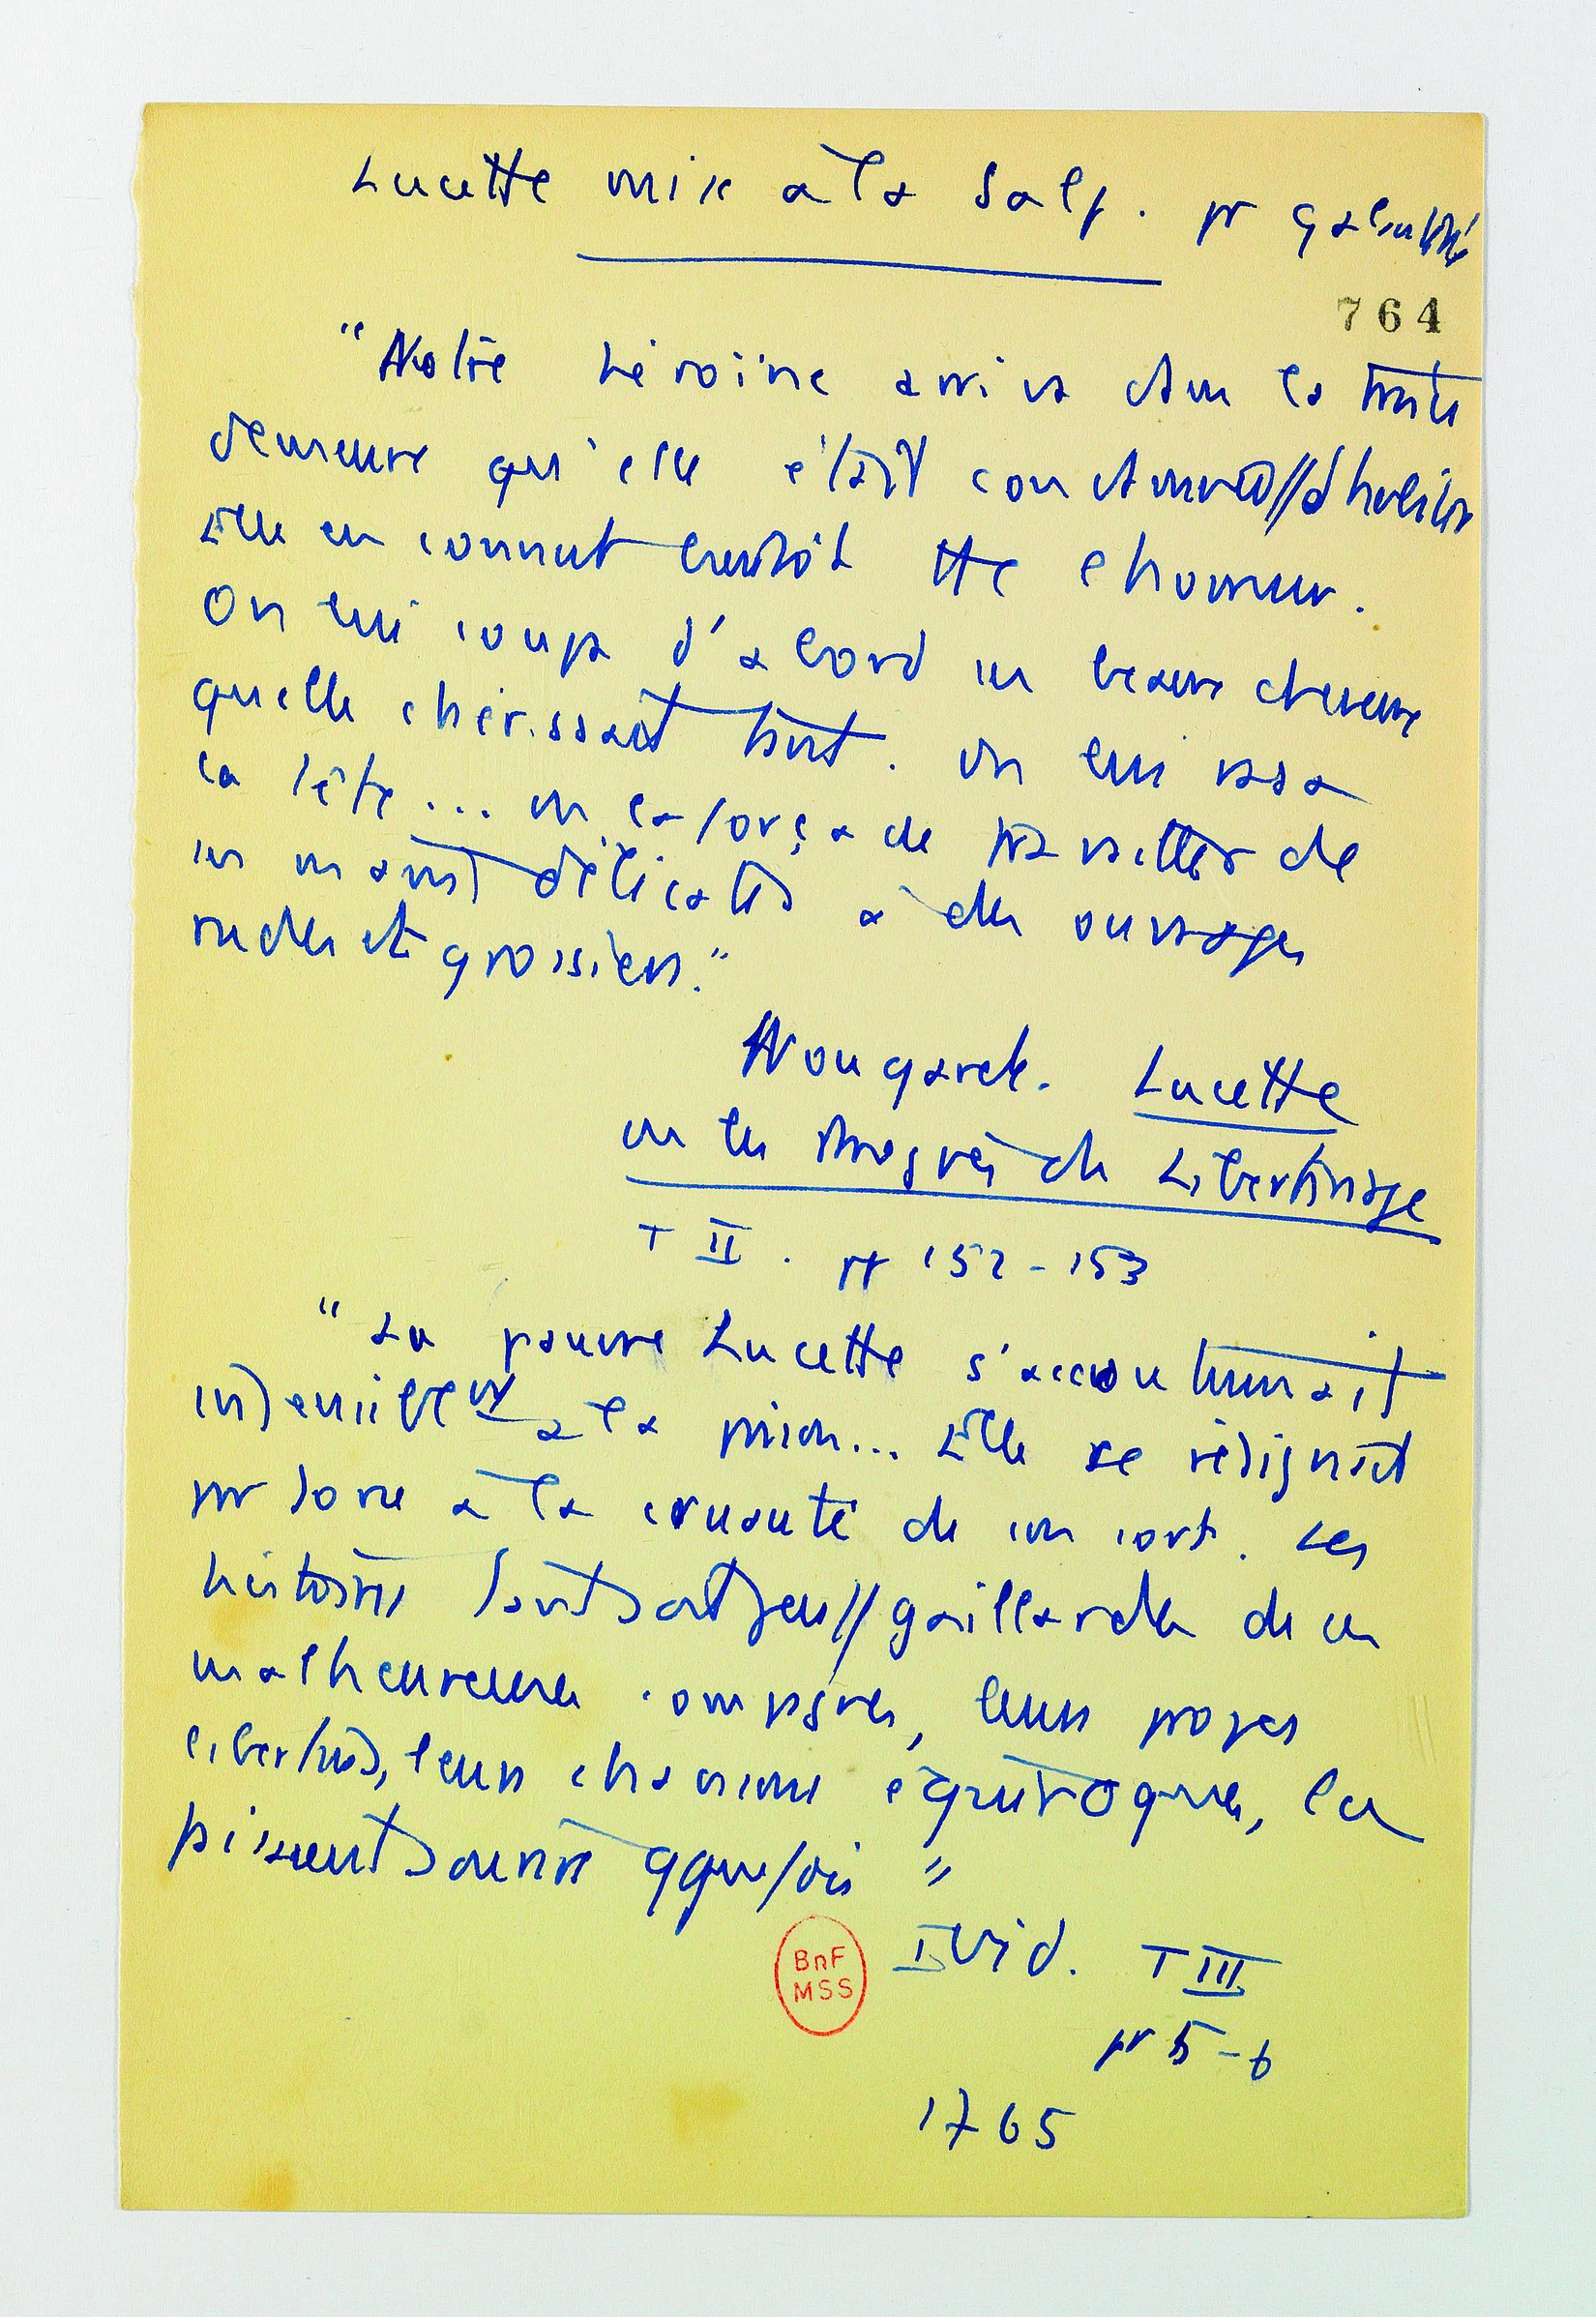 Lucette mise à la Salp. pr galanterie
764
"Notre héroïne arriva dans la triste
demeure qu'elle était condamnée//d'habiter
Elle en connut bientôt tte l'horreur.
On lui coupa d'abord ses beaux cheveux
qu'elle chérissait tant. On lui rasa
la tête... on la força de travailler de
ses mains délicates à des ouvrages
rudes et grossiers."
Nougaret. Lucette
ou les Progrès du Libertinage
T II. pp 152-153
"La pauvre Lucette s'accoutumait
insensiblemt à la prison... Elle se résignait
par force à la cruauté de son sort. Les
histoires tant soit peu//gaillardes de ses
malheureuses compagnes, leurs propos
libertins, leurs chansons équivoques, la
faisaient sourire qquefois"
Ibid. T III
BnF
MSS
pp 5-6
1765